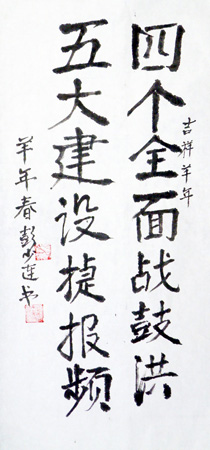 吉祥羊年
四个全面战鼓洪
五大建设捷报频
羊年春彭少莲书